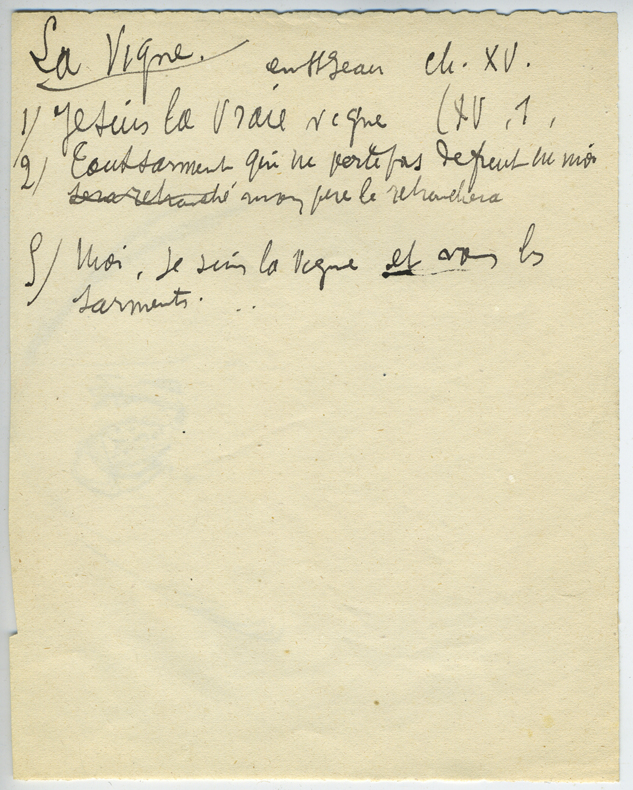 La Vigne. en St Jean ch. XV.
1/ Je suis la Vraie vigne (XV, 1,
2/ Tout sarment qui ne porte pas de fruit en moi
sera retranché mon père le retranchera
5/ Moi, Je suis la vigne et vous les
sarments. . .